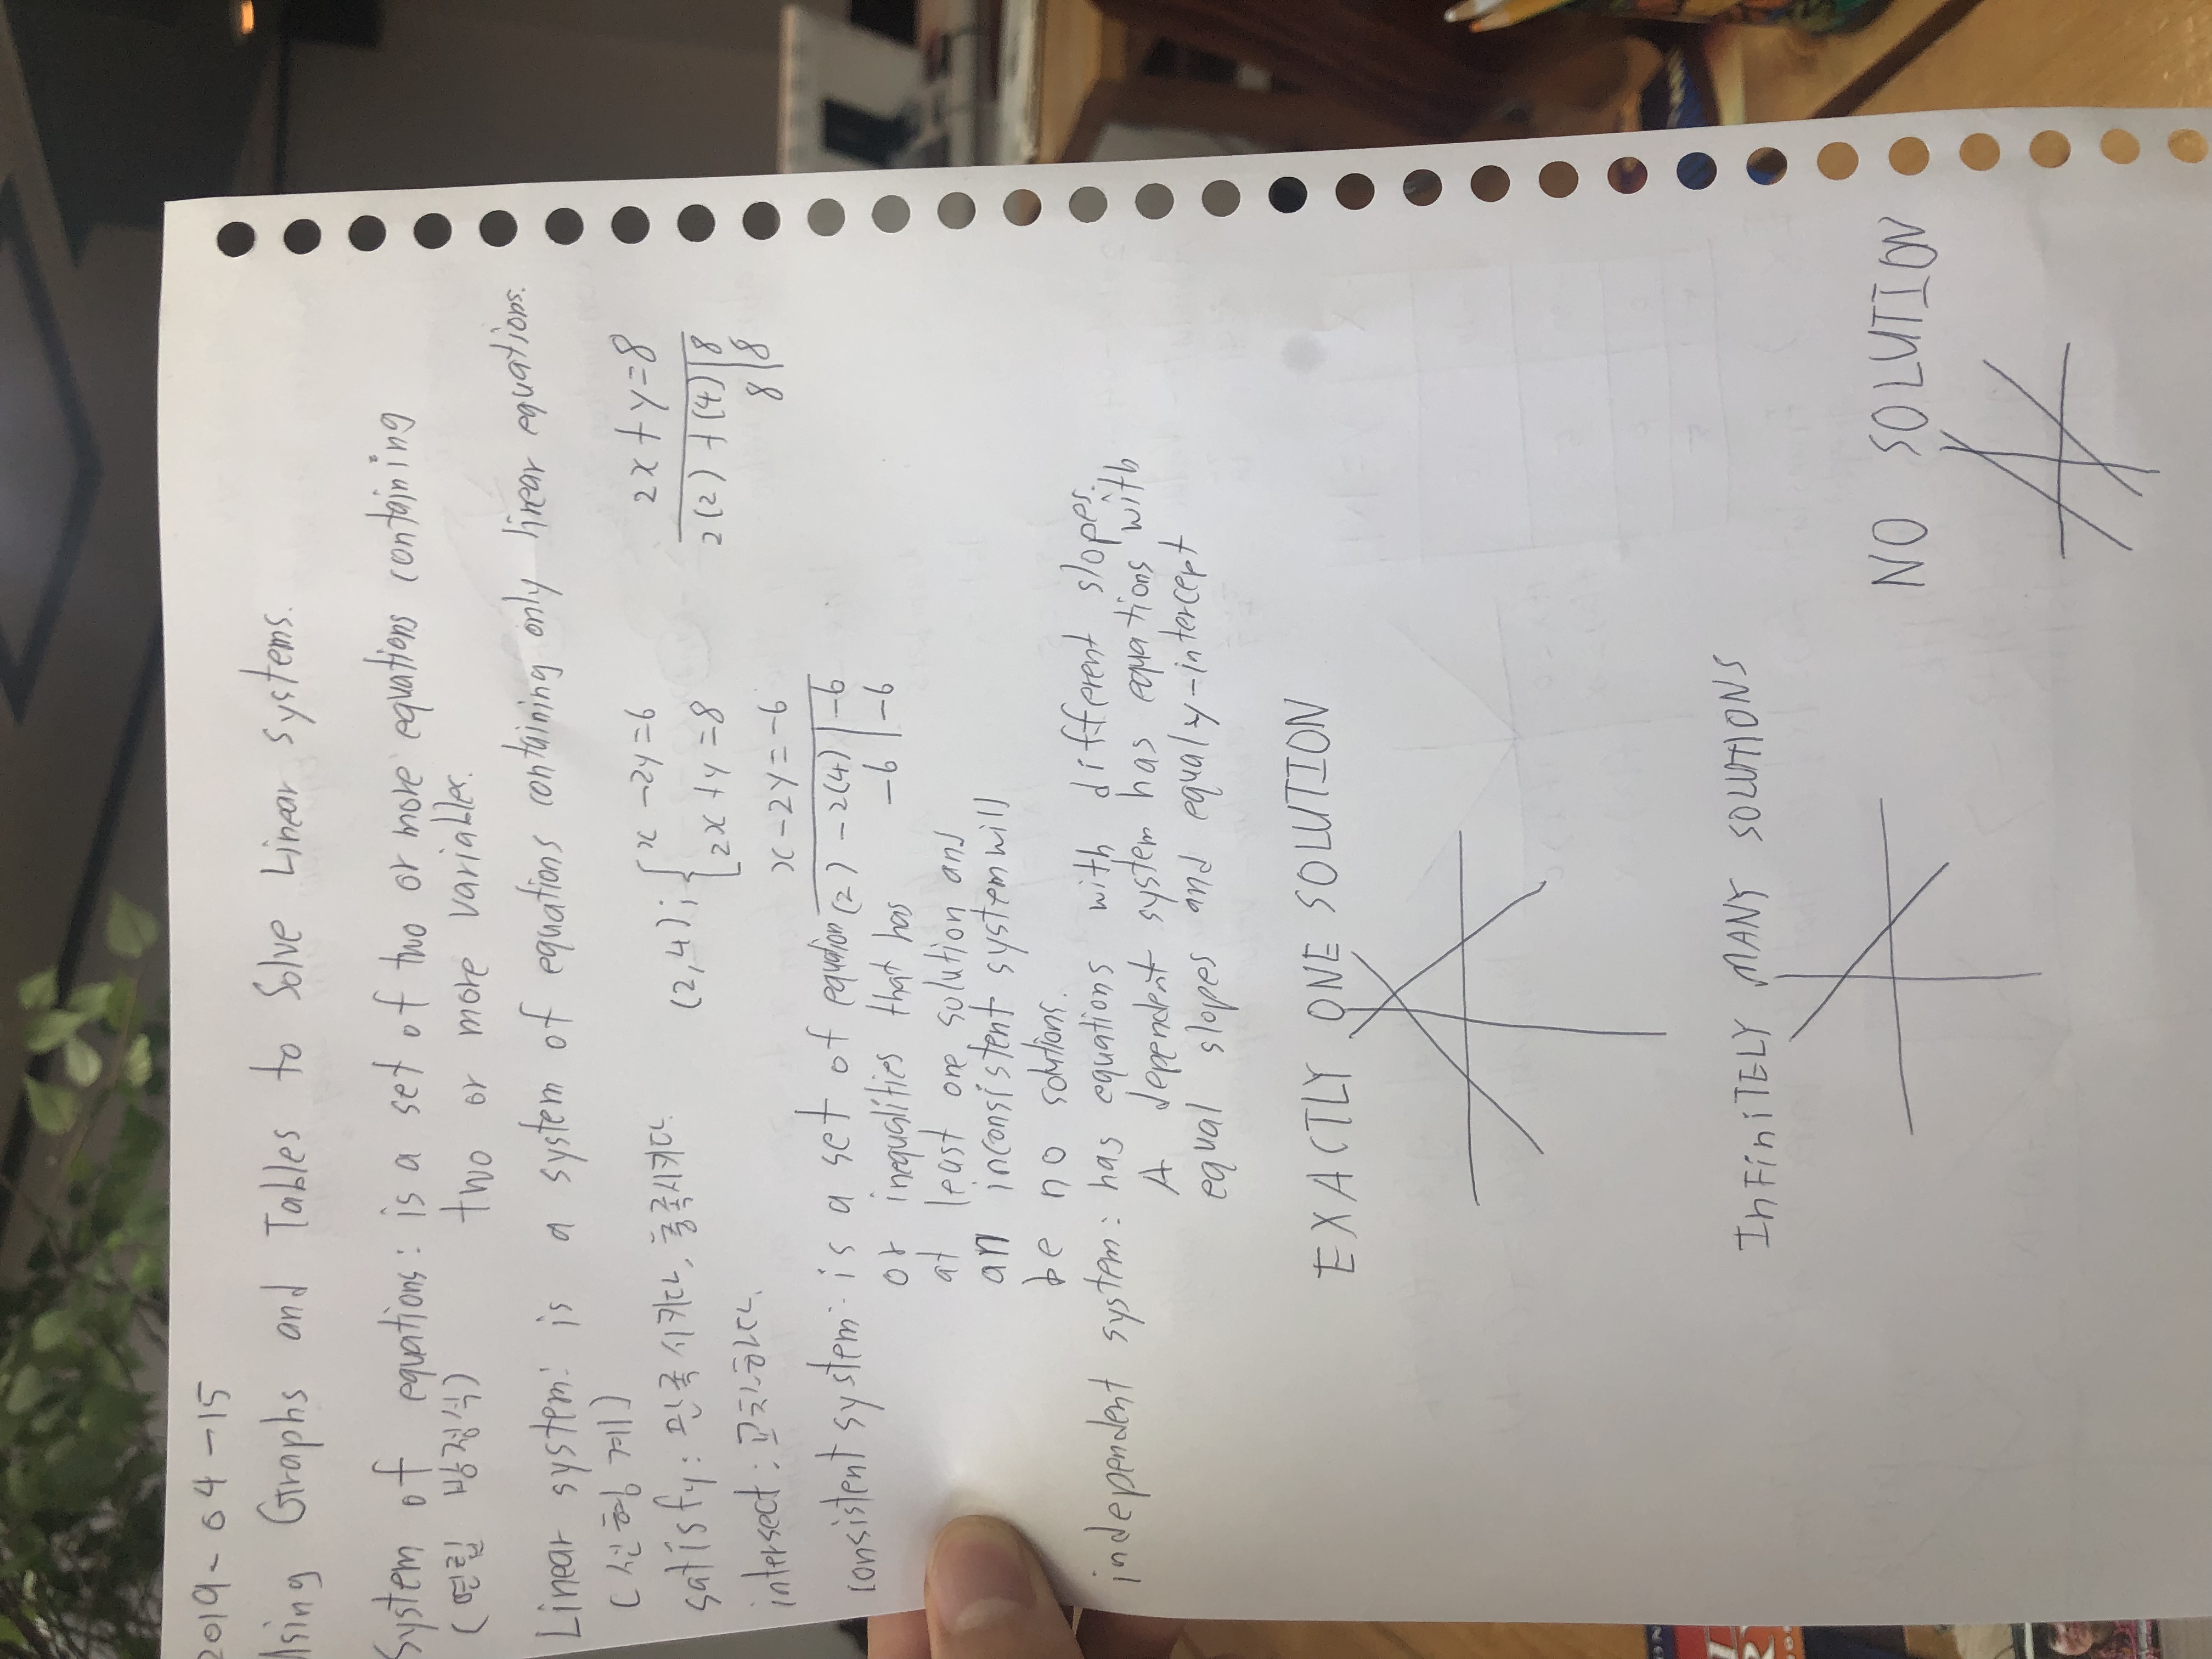 2019-04-15
Using Graphs and Tables to Solve Linear Systems.
System of equations: is a set of two or more equations containing
(연립 방정식) two or more variables.
Linear system: is a system of equations containing only linear equations.
(선형 계)
(2,4); { x-2y=6
2x+y=8
2x+y=8
2(2)+(4)|8
8|8
satisfy: 만족시키다, 충족시키다
intersect: 교차하다.
x-2y=-6
(2)-2(4)|-6
-6|-6
consistent system: is a set of equation
or inequalities that has
at least one solution and
an inconsistent system will
be no solutions.
independent system: has equations with different slopes.
A dependent system has equations with
equal slopes and equal y-intercept
EXACTLY ONE SOLUTION
InFiniTELY MANY SOLUTIONS
NO SOLUTION